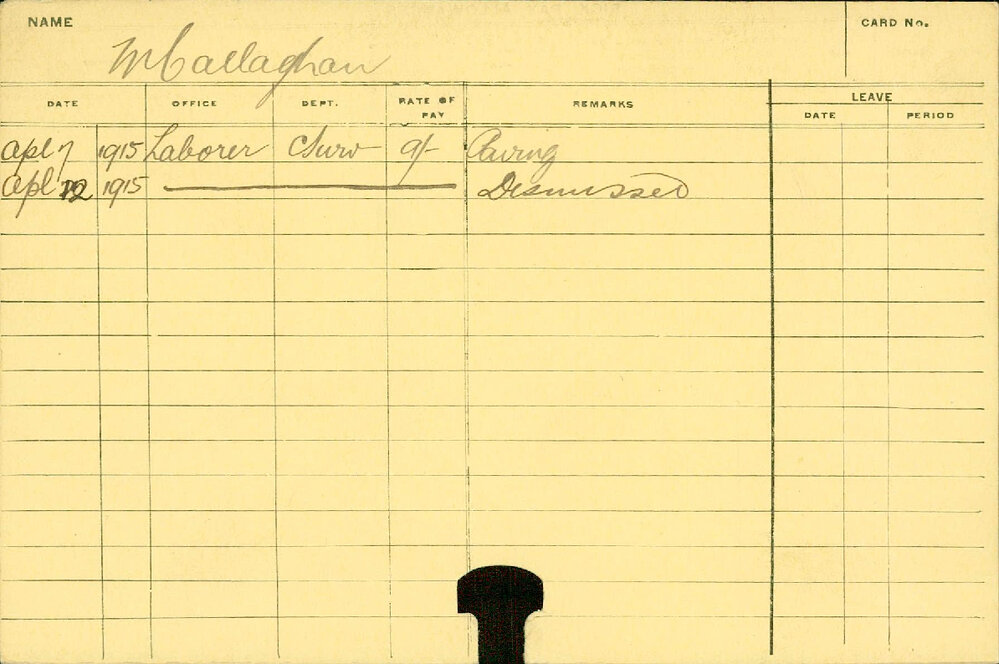 NAME
CARD No.
M Callaghan
DATE OFFICE DEPT. RATE OF PAY REMARKS LEAVE
DATE PERIOD
Apl 7 1915 Laborer Surv 9/- Paving
Apl 12 1915 Dismissed